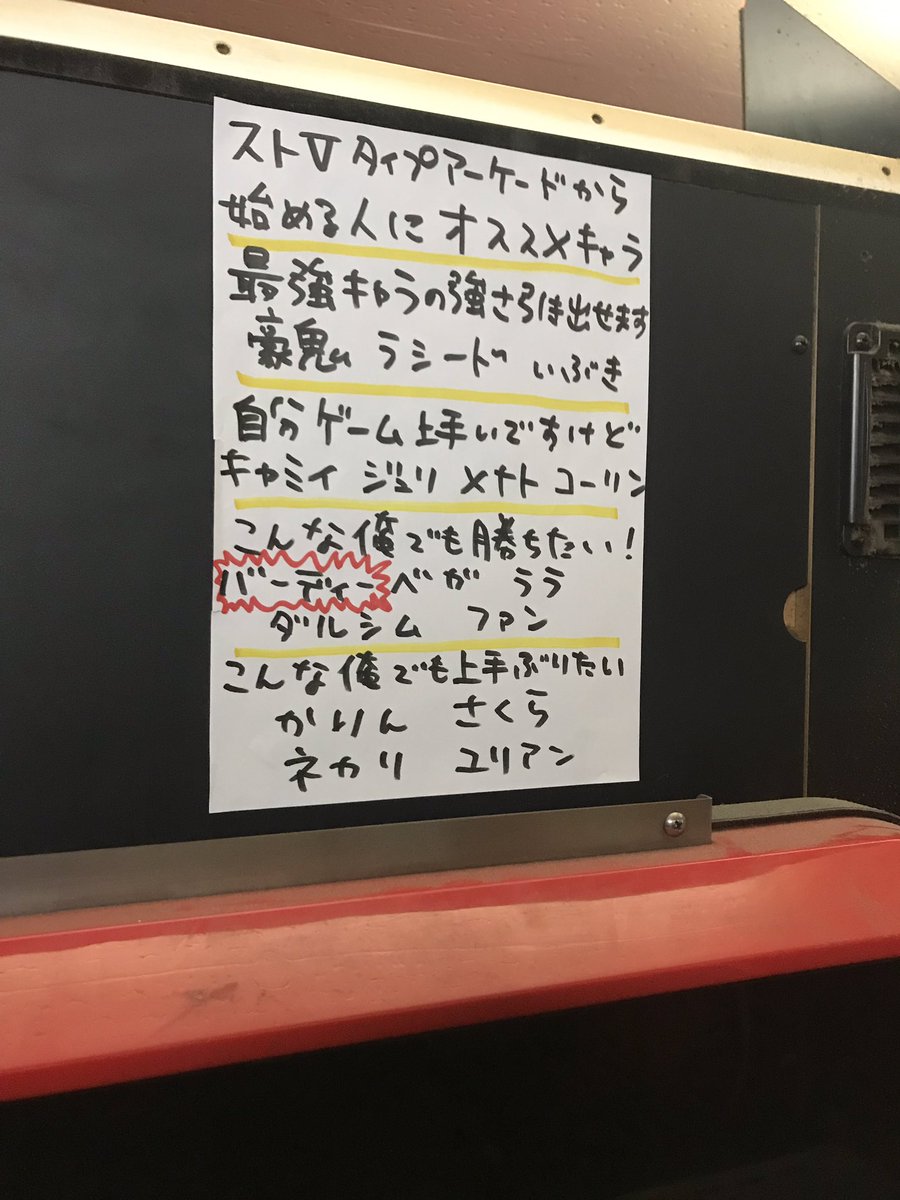 ストⅤタイプアーケードから
始める人にオススメキャラ
最強キャラの強さ引き出せます
豪鬼 ラシード いぶき
自分ゲーム上手いですけど
キャミィ ジュリ メナト コーリン
こんな俺でも勝ちたい!
バーディー ベガ ララ
ダルシム ファン
こんな俺でも上手ぶりたい
かりん さくら
ネカリ ユリアン